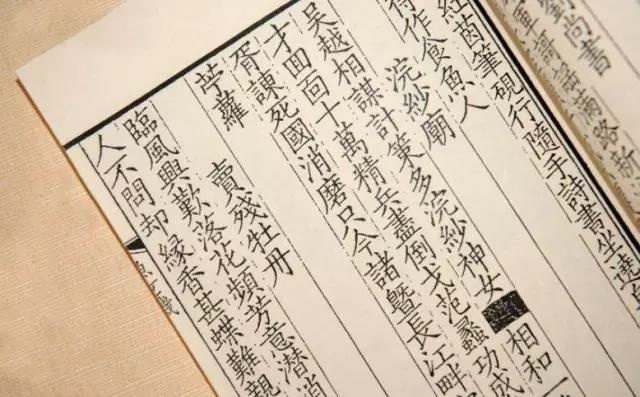 尚書
軍
滿路新
紅茵筆硯行隨手詩書坐遶
得作食魚人
浣紗廟
吳越相謀計策多浣紗神女相和一
才面回十萬精兵盡倒戈范蠡功成
胥諫死國消磨只今諸暨長江畔
苧蘿
賣殘牡丹
臨風興歎落花頻芳意潛消
人不問却緣香甚蝶難親